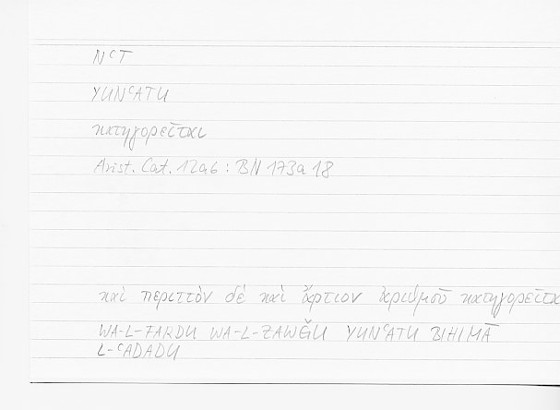 NʿT
YUNʿATU
κατηγορεῖται
Arist. Cat. 12a6 : BN 173a18
καὶ περιττὸν δέ καὶ ἄρτιον ἀριθμοῦ κατηγορεῖται
WA-L-FARDU WA-L-ZAWǦU YUNʿATU BIHIMĀ
L-ʿADADU